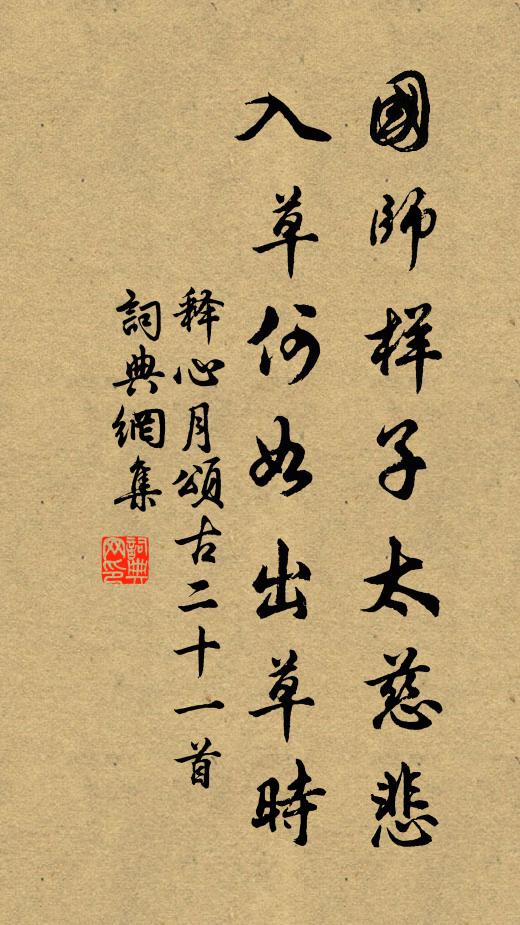 國師样子太慈悲
入草何如出草時
释心月頌古二十一首
詞典網集
詞典网印